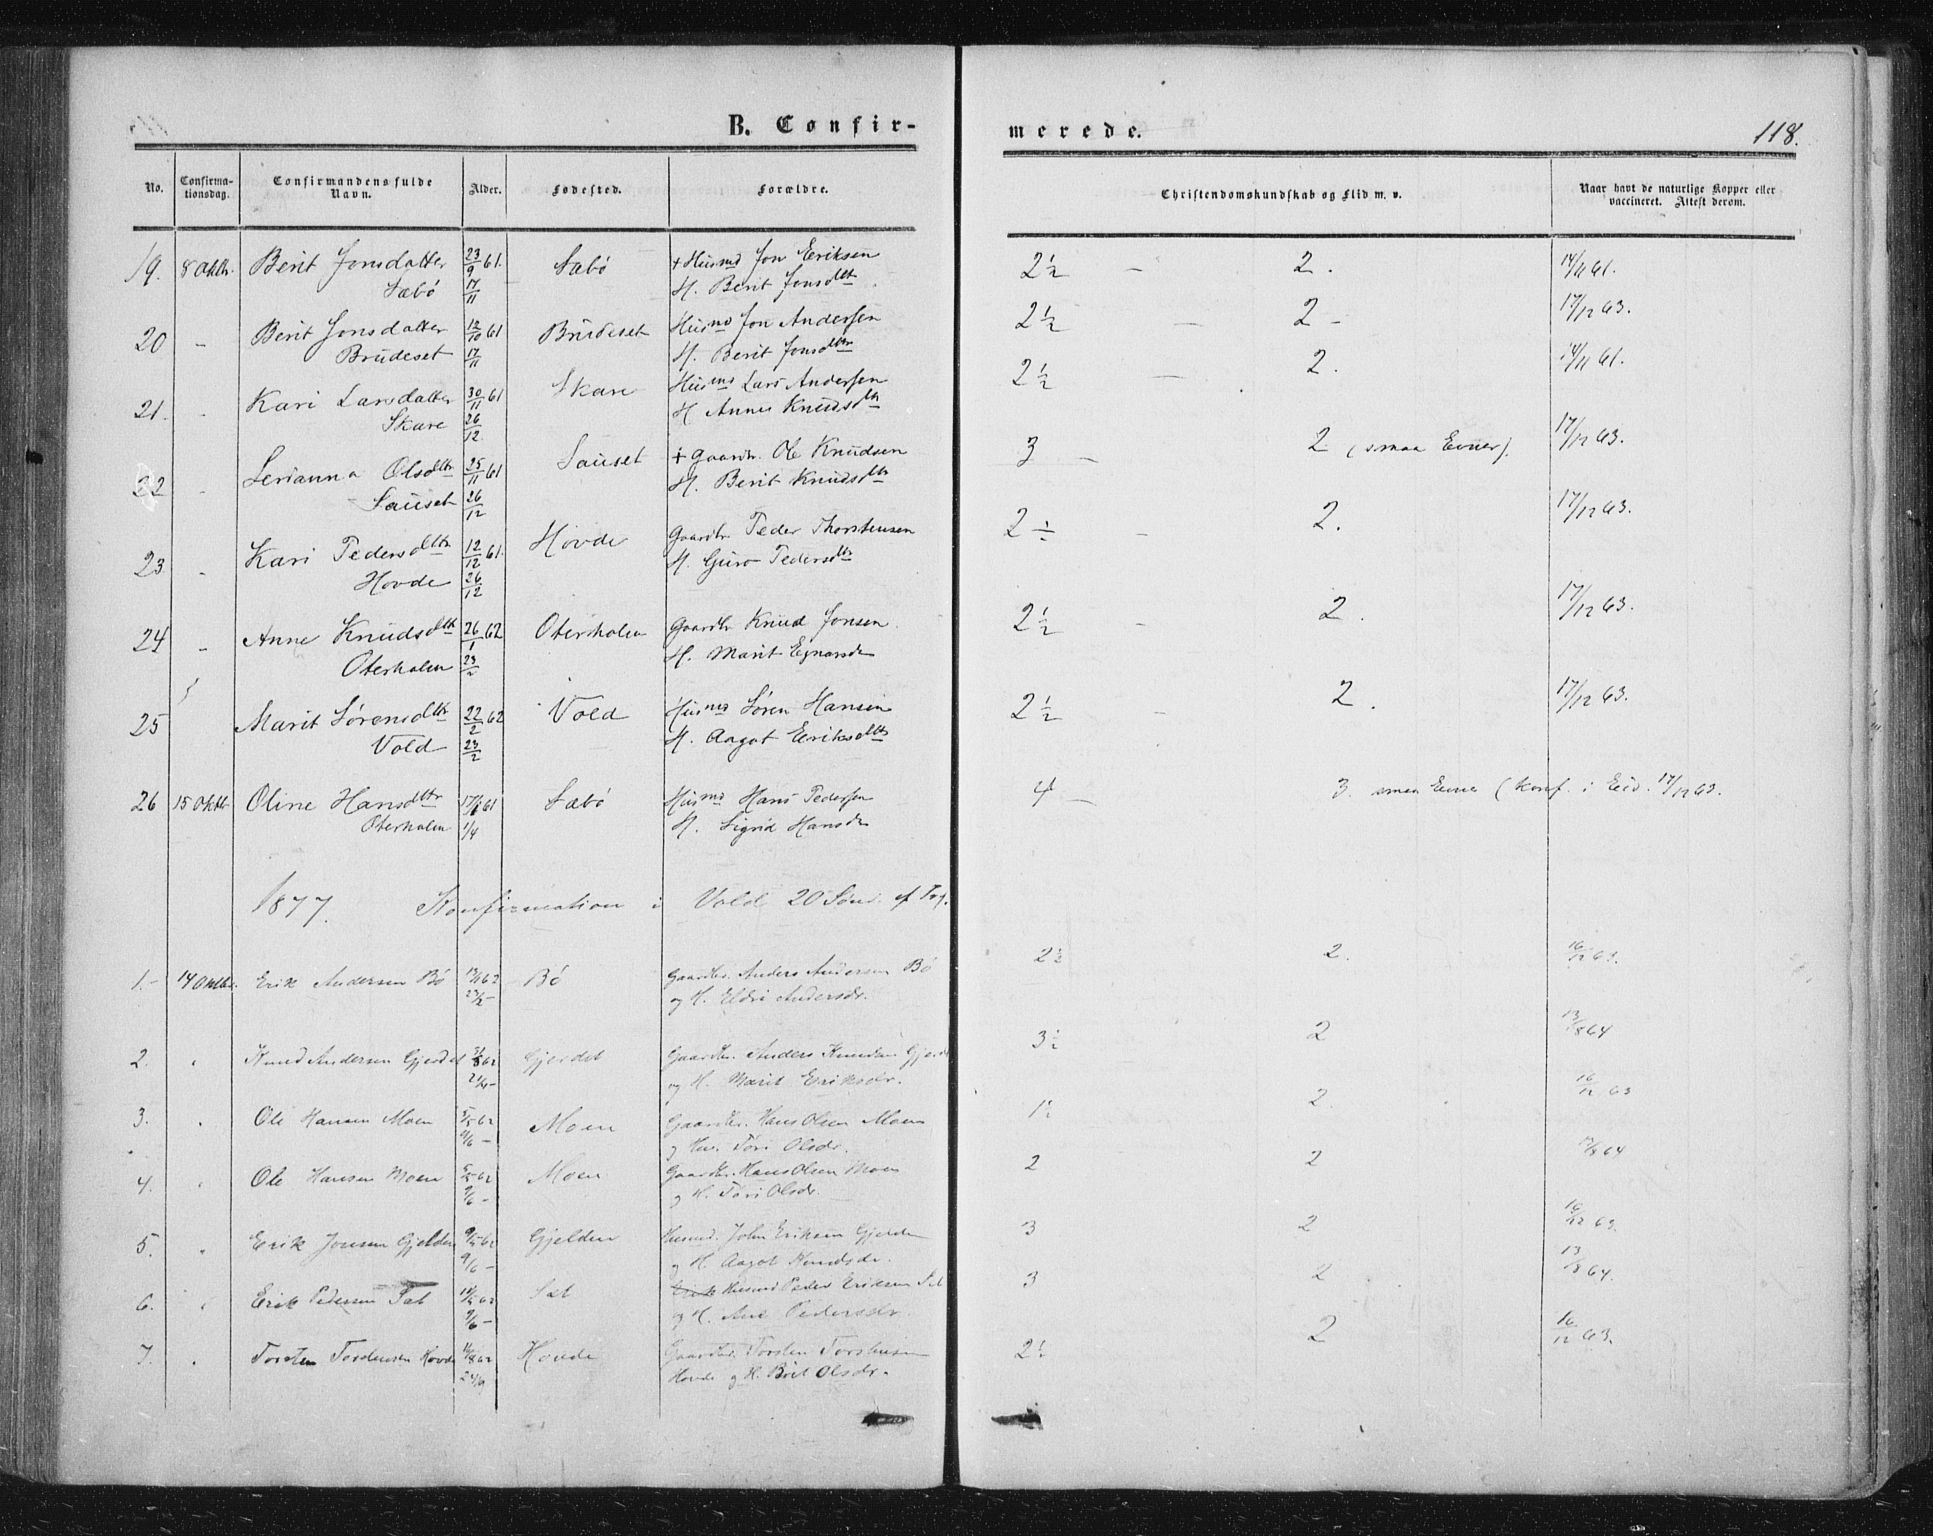 B. Confir-
merede.
118.
No.
Confirma-
tionsdag.
Confirmandens fulde
Navn.
Alder.
Fødested.
Forældre.
Christendomskundskab og Flid m. v.
Naar havt de naturlige Kopper eller
vaccineret. Attest derom.
19. 8 Oktb. Berit Jonsdatter 23/9 61. Sæbø + Husmd Jon Eriksen 2½ - 2. 14/11 61.
Sæbø 17/11 H. Berit Jonsdtr.
20 - Berit Jonsdatter 12/10 61 Brudeset Husmd Jon Andersen 2½ - 2 - 17/12 63.
Brudeset 17/11 H. Berit Jonsdtr
21. - Kari Larsdatter 30/11 61 Skare Husmd Lars Andersen 2½ - 2. 14/11 61.
Skare 26/12 H Anne Knudsdtr
22 - Serianna Olsdtr 25/11 61 Sauset + Gaardbr. Ole Knudsen 3 - 2 (smaa Evner). 17/12 63.
Sauset 26/12 H. Berit Knudsdtr
23 - Kari Pedersdtr 12/12 61. Hovde Gaardbr Peder Thorstensen 2½ - 2. 17/12 63.
Hovde 26/12 H. Guro Pedersdtr
24 - Anne Knudsdtr 26/1 62 Oterholen Gaardbr Knud Jonsen 2½ - 2. 17/12 63.
Oterholen 23/2 H. Marit
25 Marit Sørensdtr 22/2 62 Vold Husmd Søren Hansen 2½ - 2. 17/12 63.
Vold 23/2 H. Aagot Eriksdtr
26 15 Oktb Oline Hansdtr 61 Sæbø Husmd Hans Pedersen 4 - 3. smaa Evner (Konf. i Eid. 17/12 63.
Oterholen 1/4 H. Sigrid Hansdr
1877. Konfirmation i Vold 20 Sønd. ef Tr.
1. - 14 Oktbr. Erik Andersen Bø 62 Bø Gaardbr. Anders Andersen Bø 2½ 2. 16/12 63.
og H. Eldri Andersdr.
2. " Knud Andersen Gjerdet 62 Gjerdet Gaardbr. Anders Knudsen 3½ 2 13/8 64
og H. Marit Eriksdr.
3. " Ole Hansen Moen 62 Moen Gaardbr. Hans Olsen Moen 1½ 2. 16/12 63
9/6 - og Hu. Tøri Olsdr.
4. " Ole Hansen Moen 62 Moen Gaardbr. Hans Olsen Moen 2 2 64
9/6 - og H. Tøri Olsdr.
5. " Erik Jonsen Gjelden 62 Gjelden Husmd. John Eriksen Gjelden 3 2 16/12 63.
9/6 - og H. Aagot Knudsdr.
6. " Erik Pedersen Sæt 62 Sæt Erik Husmd Peder Eriksen Sæt 3 2 13/8 64.
9/6 - og H. Ane Pedersdr.
7. " Torsten Torstensen Hovde 62 Hovde Gaardbr. Torsten Torstensen 2½ 2 16/12 63.
Hovde og H. Brit Olsdr.